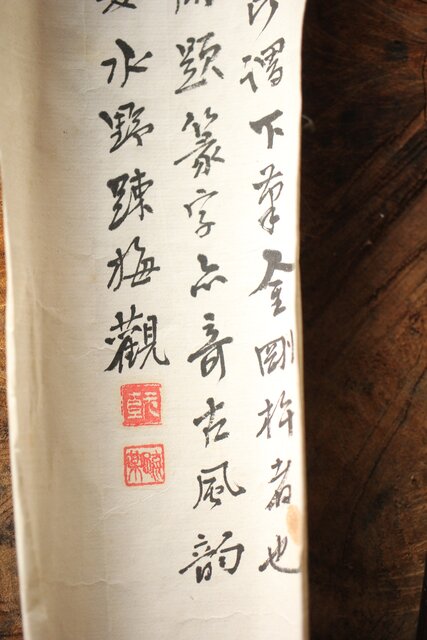 謂下筆金剛杵者也
題篆字亦奇古風韵
水野踈梅觀